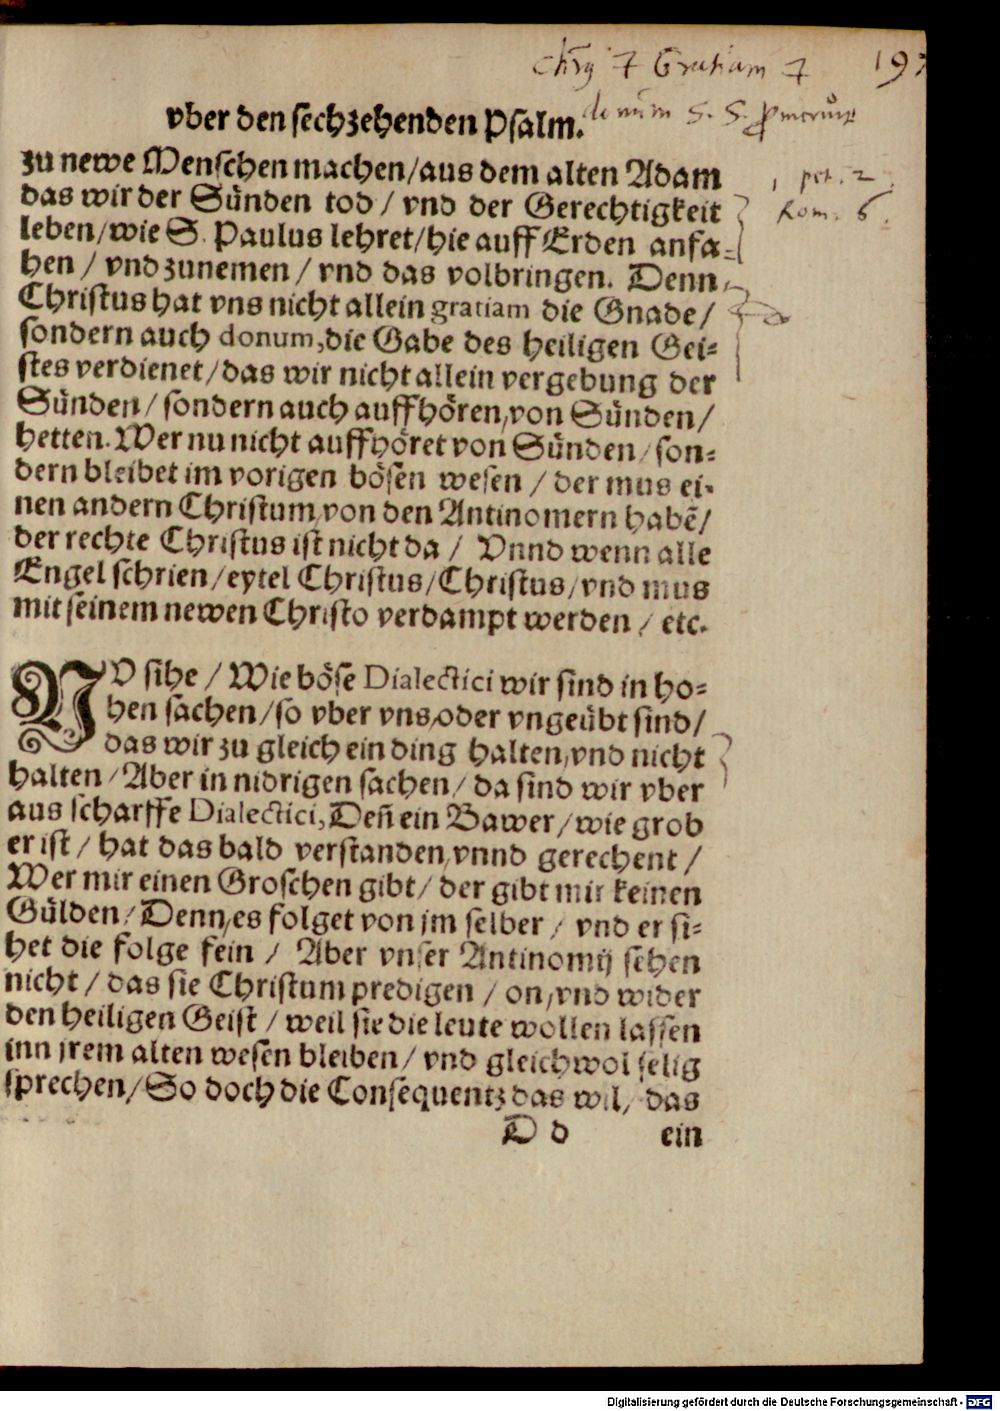 chrũ et Gratiam et 197
vber den sechzehenden Psalm.
donum S. S. promeruit
zu newe Menschen machen/aus dem alten Adam
1. pet. 2.
das wir der Sünden tod / vnd der Gerechtigkeit
Rom. 6.
leben/wie S. Paulus lehret/hie auff Erden anfa-
hen / vnd zunemen / vnd das volbringen. Denn,
Christus hat vns nicht allein gratiam die Gnade/
sondern auch donum,die Gabe des heiligen Gei-
stes verdienet/das wir nicht allein vergebung der
Sünden/ sondern auch auffhören,von Sünden/
hetten. Wer nu nicht auffhöret von Sünden/son-
dern bleibet im vorigen bösen wesen / der mus ei-
nen andern Christum,von den Antinomern habē/
der rechte Christus ist nicht da / Vnnd wenn alle
Engel schrien/eytel Christus/Christus/vnd mus
mit seinem newen Christo verdampt werden / etc.
NV sihe / Wie böse Dialectici wir sind in ho-
hen sachen/so vber vns,oder vngeübt sind/
das wir zu gleich ein ding halten,vnd nicht
halten/Aber in nidrigen sachen/da sind wir vber
aus scharffe Dialectici,Deñ ein Bawer/wie grob
er ist/ hat das bald verstanden,vnnd gerechent /
Wer mir einen Groschen gibt/ der gibt mir keinen
Gülden/Denn,es folget von jm selber / vnd er si-
het die folge fein / Aber vnser Antinomij sehen
nicht / das sie Christum predigen / on,vnd wider
den heiligen Geist / weil sie die leute wollen lassen
inn jrem alten wesen bleiben/ vnd gleichwol selig
sprechen/So doch die Consequentz das wil, das
D d ein
Digitalisierung gefördert durch die Deutsche Forschungsgemeinschaft - DFG